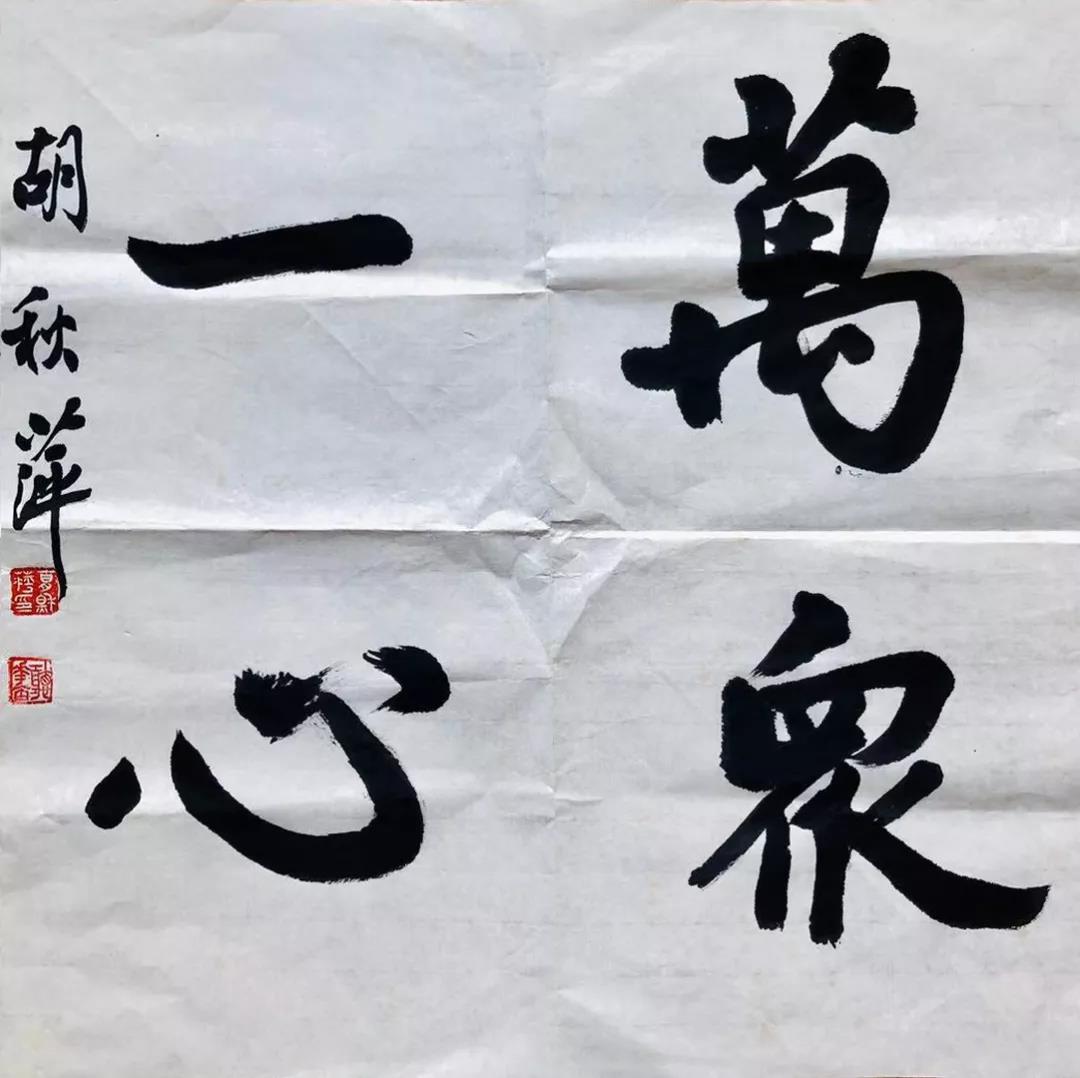 萬眾
一心
胡秋萍